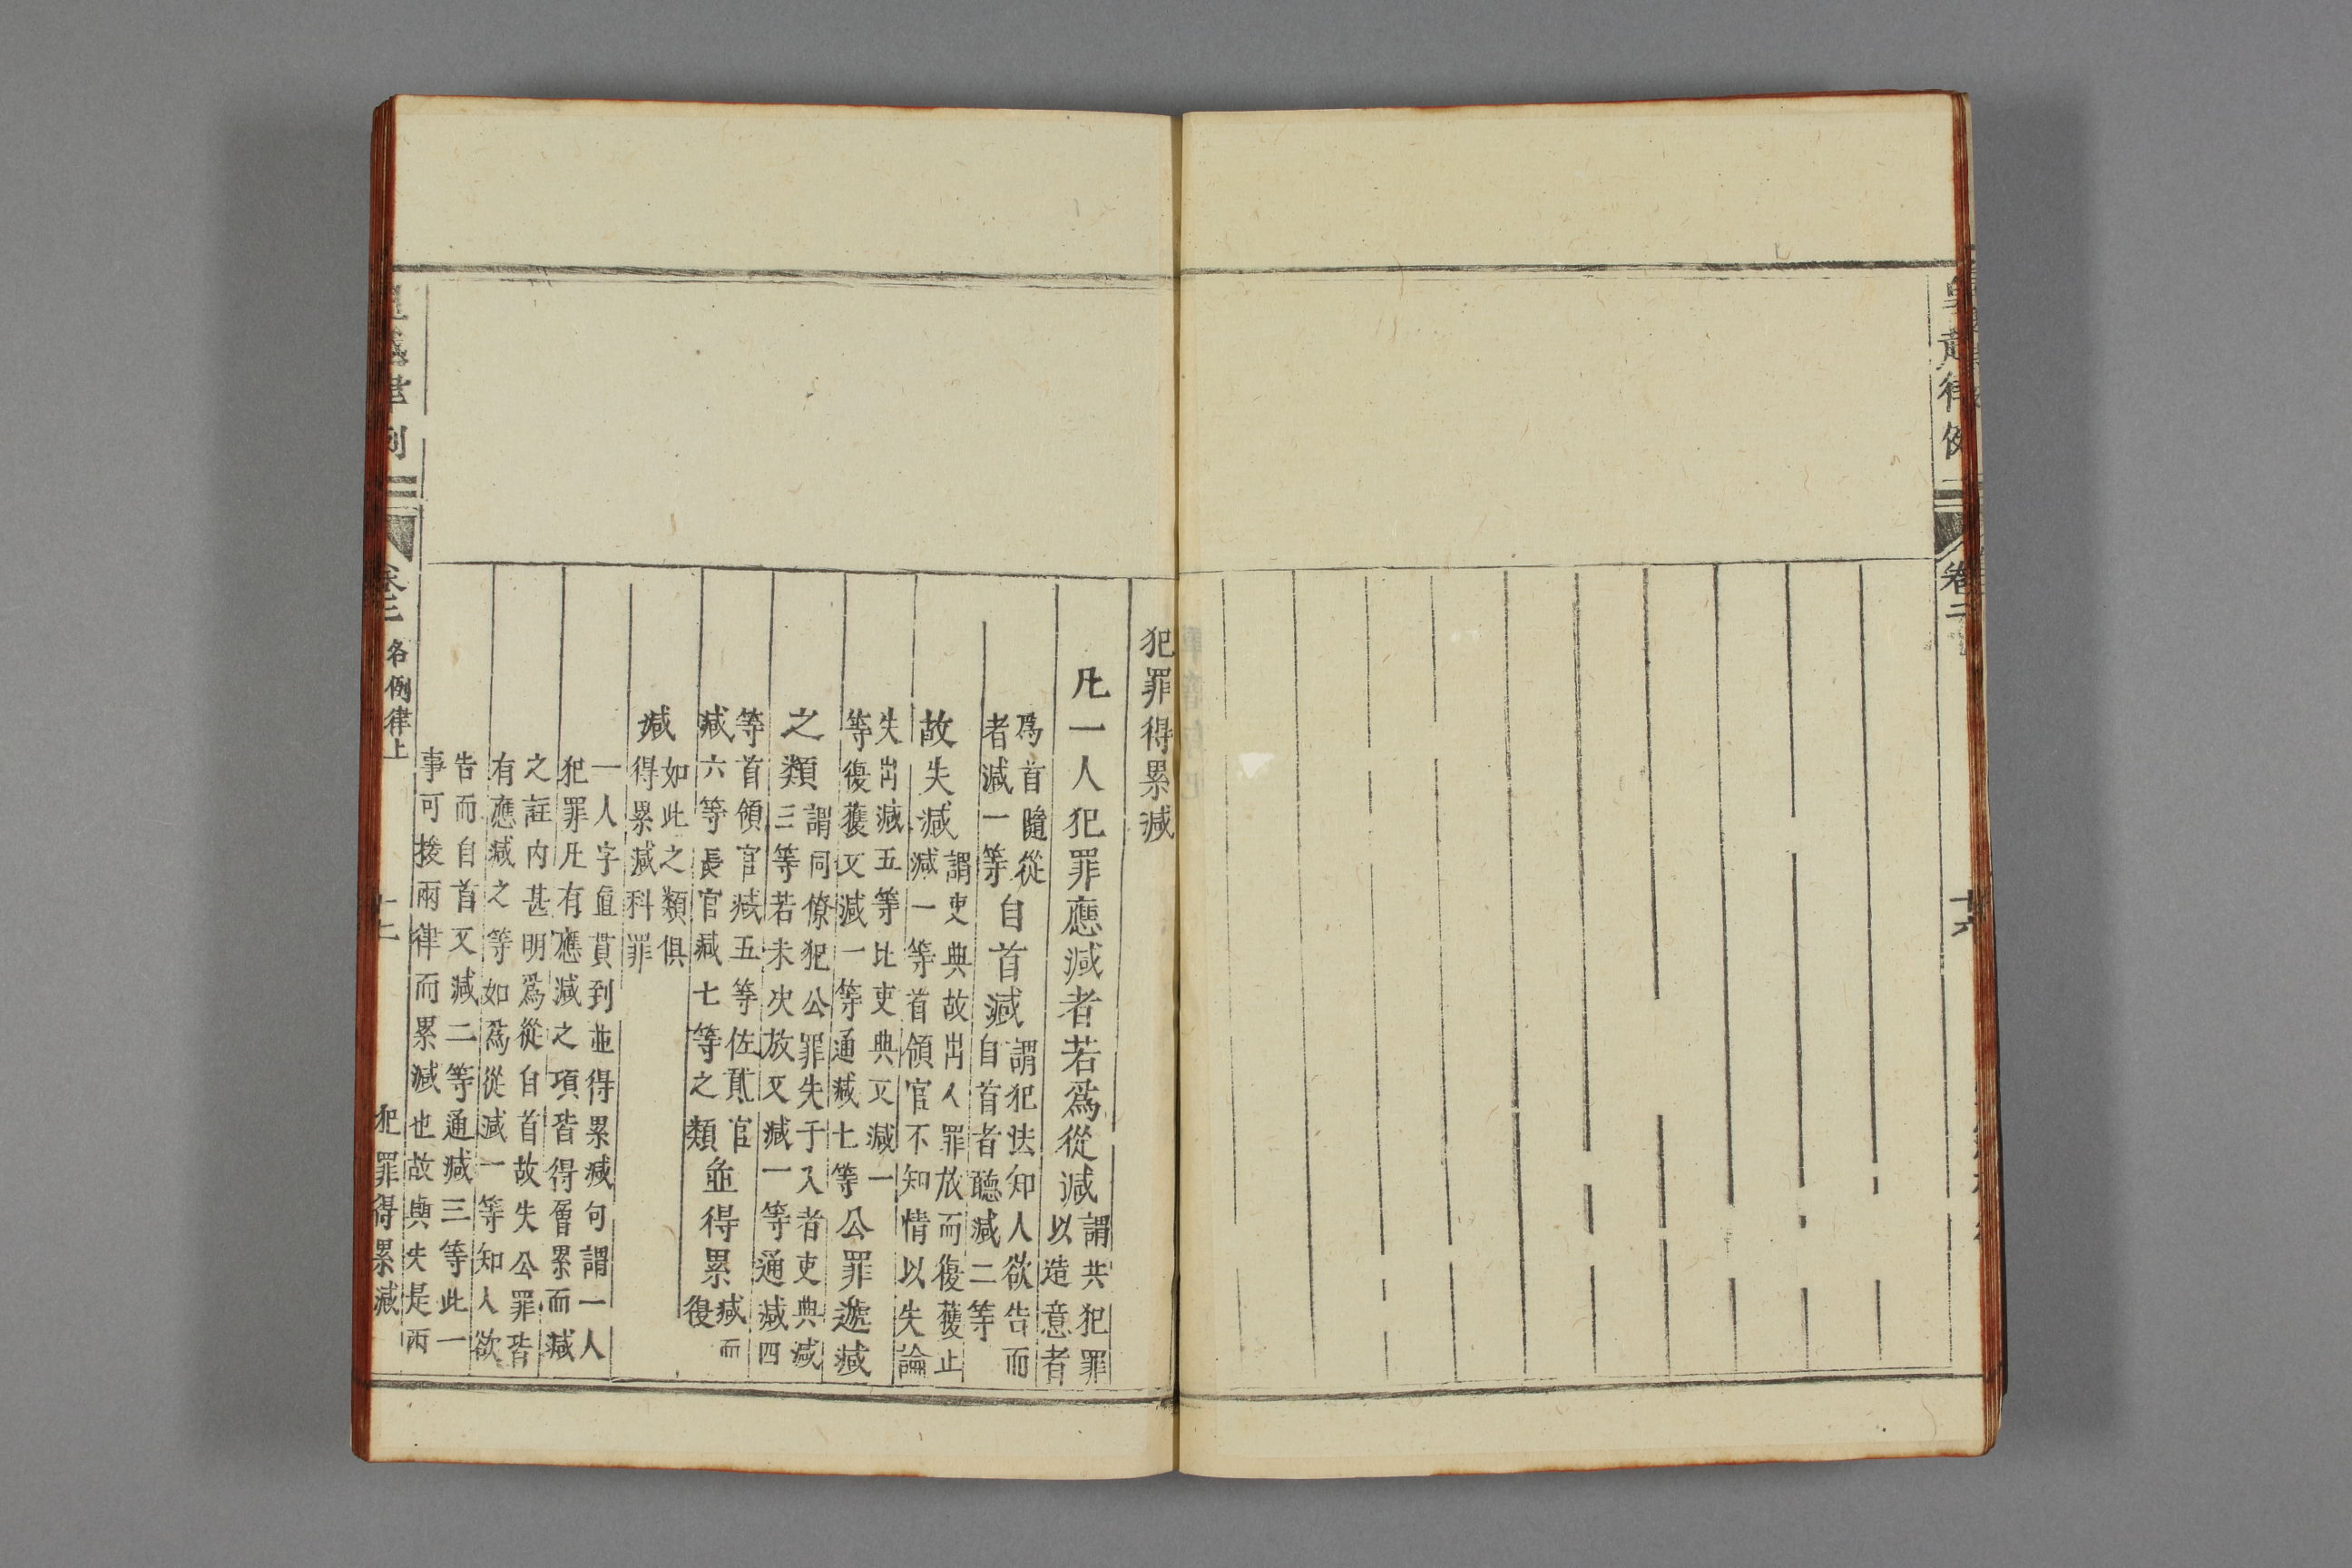 皇越律例
卷二
十六
犯罪得累减
凡一人犯罪應减者若爲從减謂共犯罪以造意者
爲首隨從者减一等自首减謂犯法知人欲告而自首者聽减二等
故失减謂吏典故出人罪放而復獲止减一等首領官不知情以失論
失出减五等比吏典又减一等復獲又减一等通减七等公罪遞减
之類謂同僚犯公罪失于入者吏典减三等若未决放又减一等通减四
等首領官减五等佐貳官减六等長官减七等之類並得累减而復
减如此之類俱得累减科罪
一人字直貫到並得累减句謂一人
犯罪凡有應减之項皆得層累而减
之註内甚明爲從自首故失公罪皆
有應减之等如爲從减一等知人欲
告而自首又减二等通减三等此一
事可接兩律而累减也故與失是兩
律例
卷二
名例律上
犯罪得累减